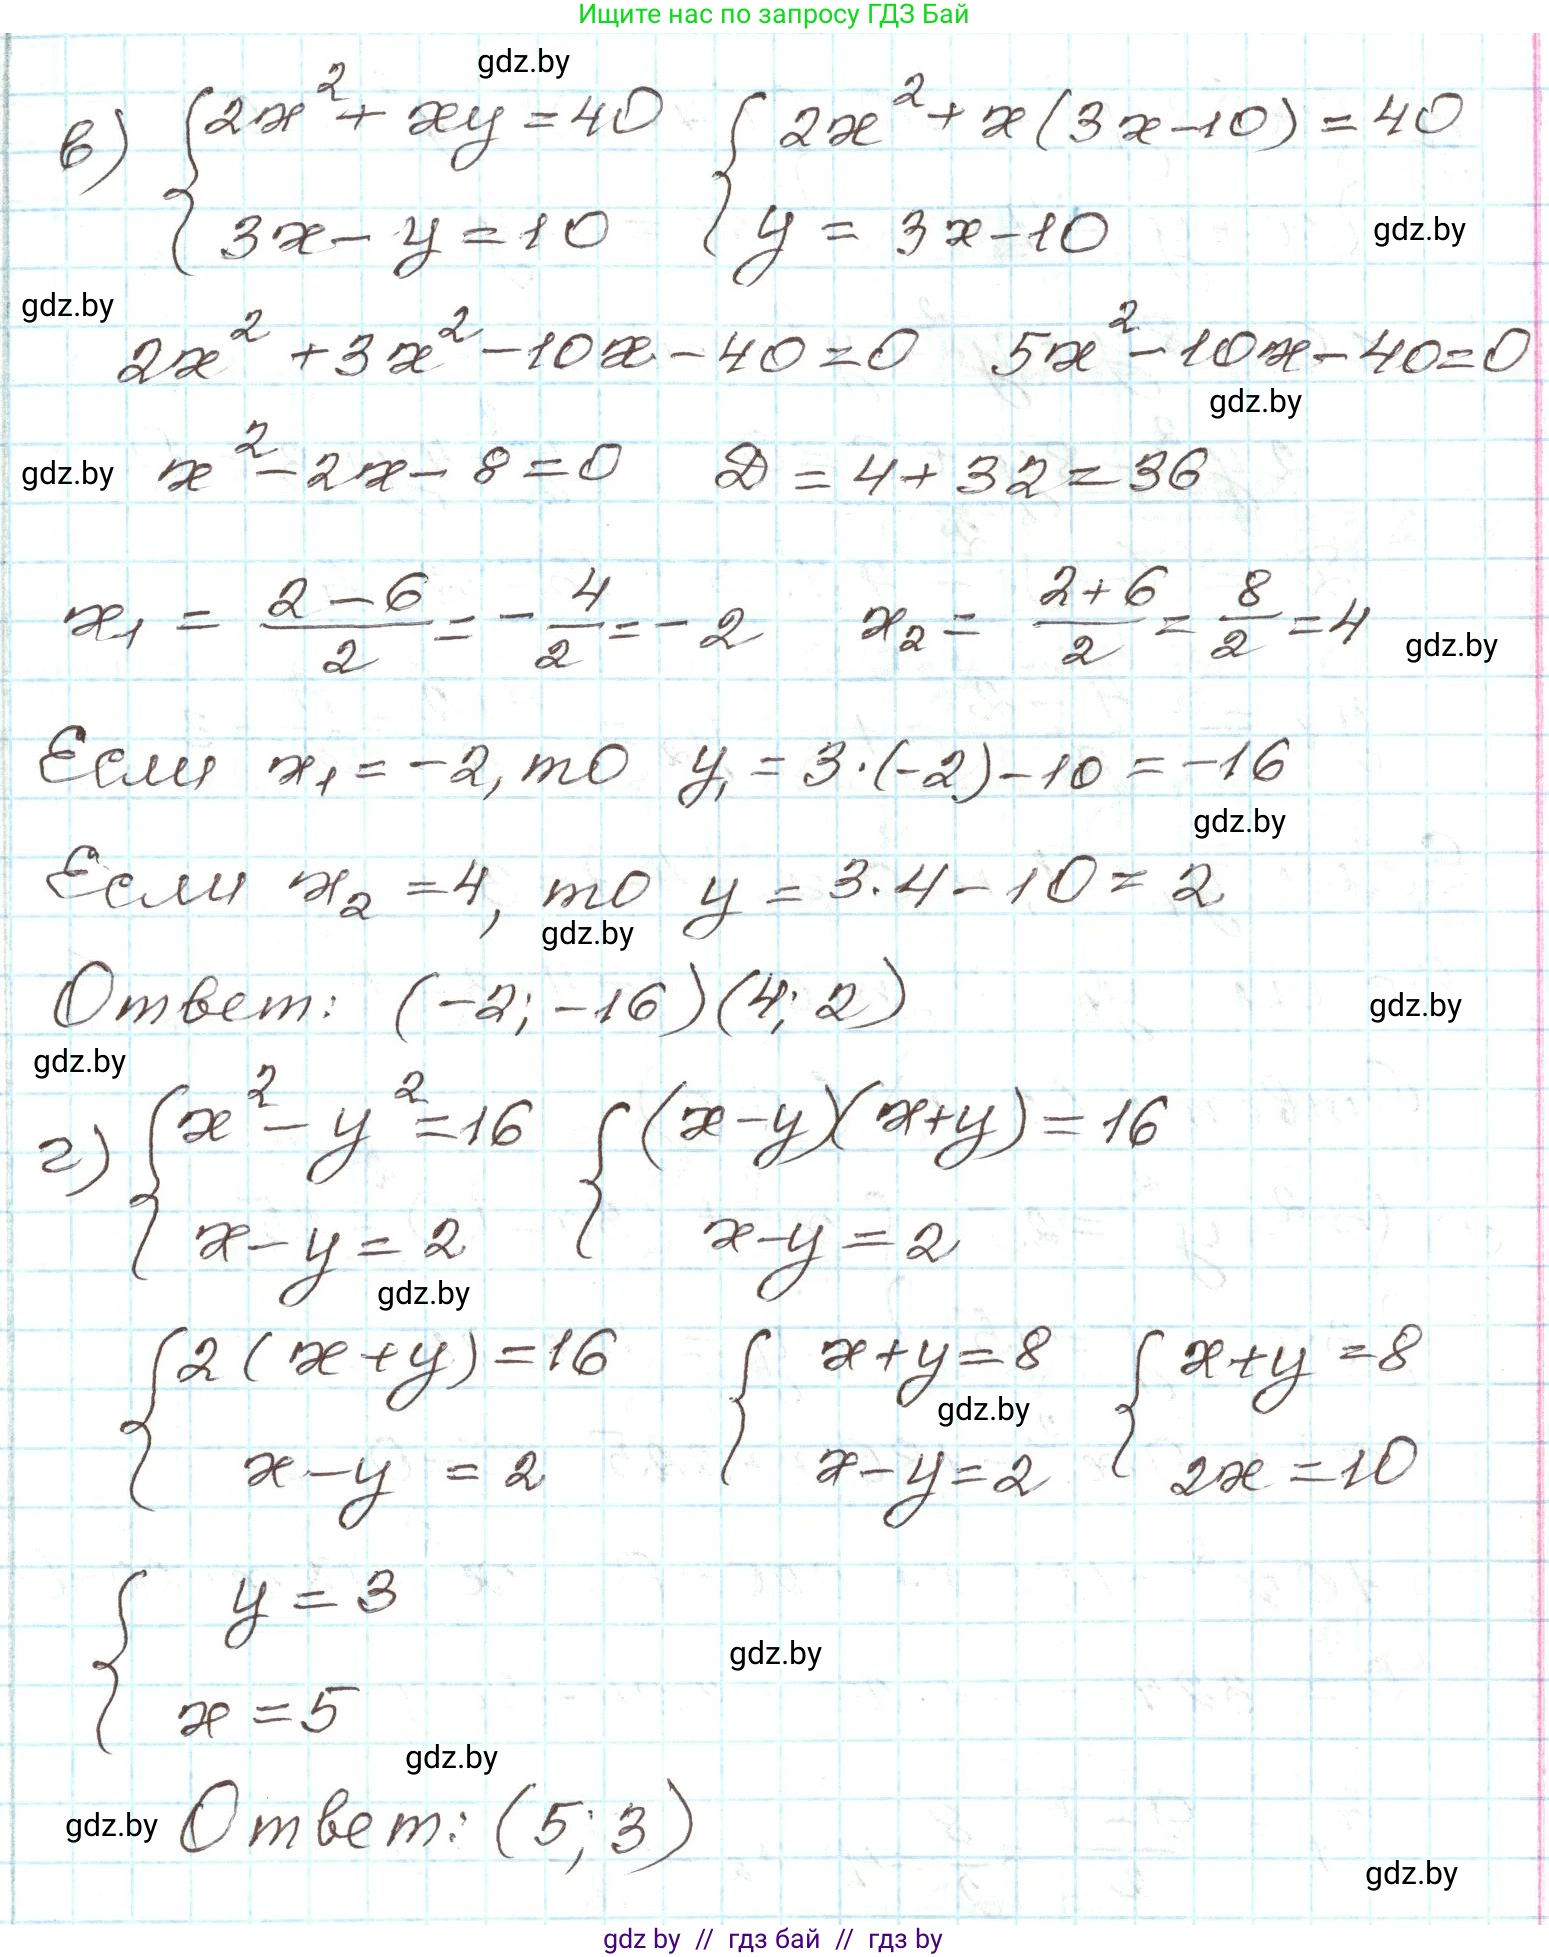 Ищите нас по запросу ГДЗ Бай
gdz.by
в) { 2x² + xy = 40 { 2x² + x(3x-10) = 40
3x - y = 10 y = 3x-10
gdz.by
gdz.by
2x² + 3x² - 10x - 40 = 0 5x² - 10x - 40 = 0
gdz.by
gdz.by x² - 2x - 8 = 0 D = 4 + 32 = 36
x₁ = (2-6)/2 = -4/2 = -2 x₂ = (2+6)/2 = 8/2 = 4
gdz.by
Если x₁ = -2, то y₁ = 3·(-2) - 10 = -16
gdz.by
Если x₂ = 4, то y = 3·4 - 10 = 2
gdz.by
Ответ: (-2; -16) (4; 2)
gdz.by
gdz.by
г) { x² - y² = 16 { (x-y)(x+y) = 16
x - y = 2 x - y = 2
gdz.by
{ 2(x+y) = 16 { x+y = 8 { x+y = 8
gdz.by
x - y = 2 x - y = 2 2x = 10
{ y = 3
gdz.by
x = 5
gdz.by
gdz.by Ответ: (5; 3)
gdz.by
gdz by // гдз бай // гдз by